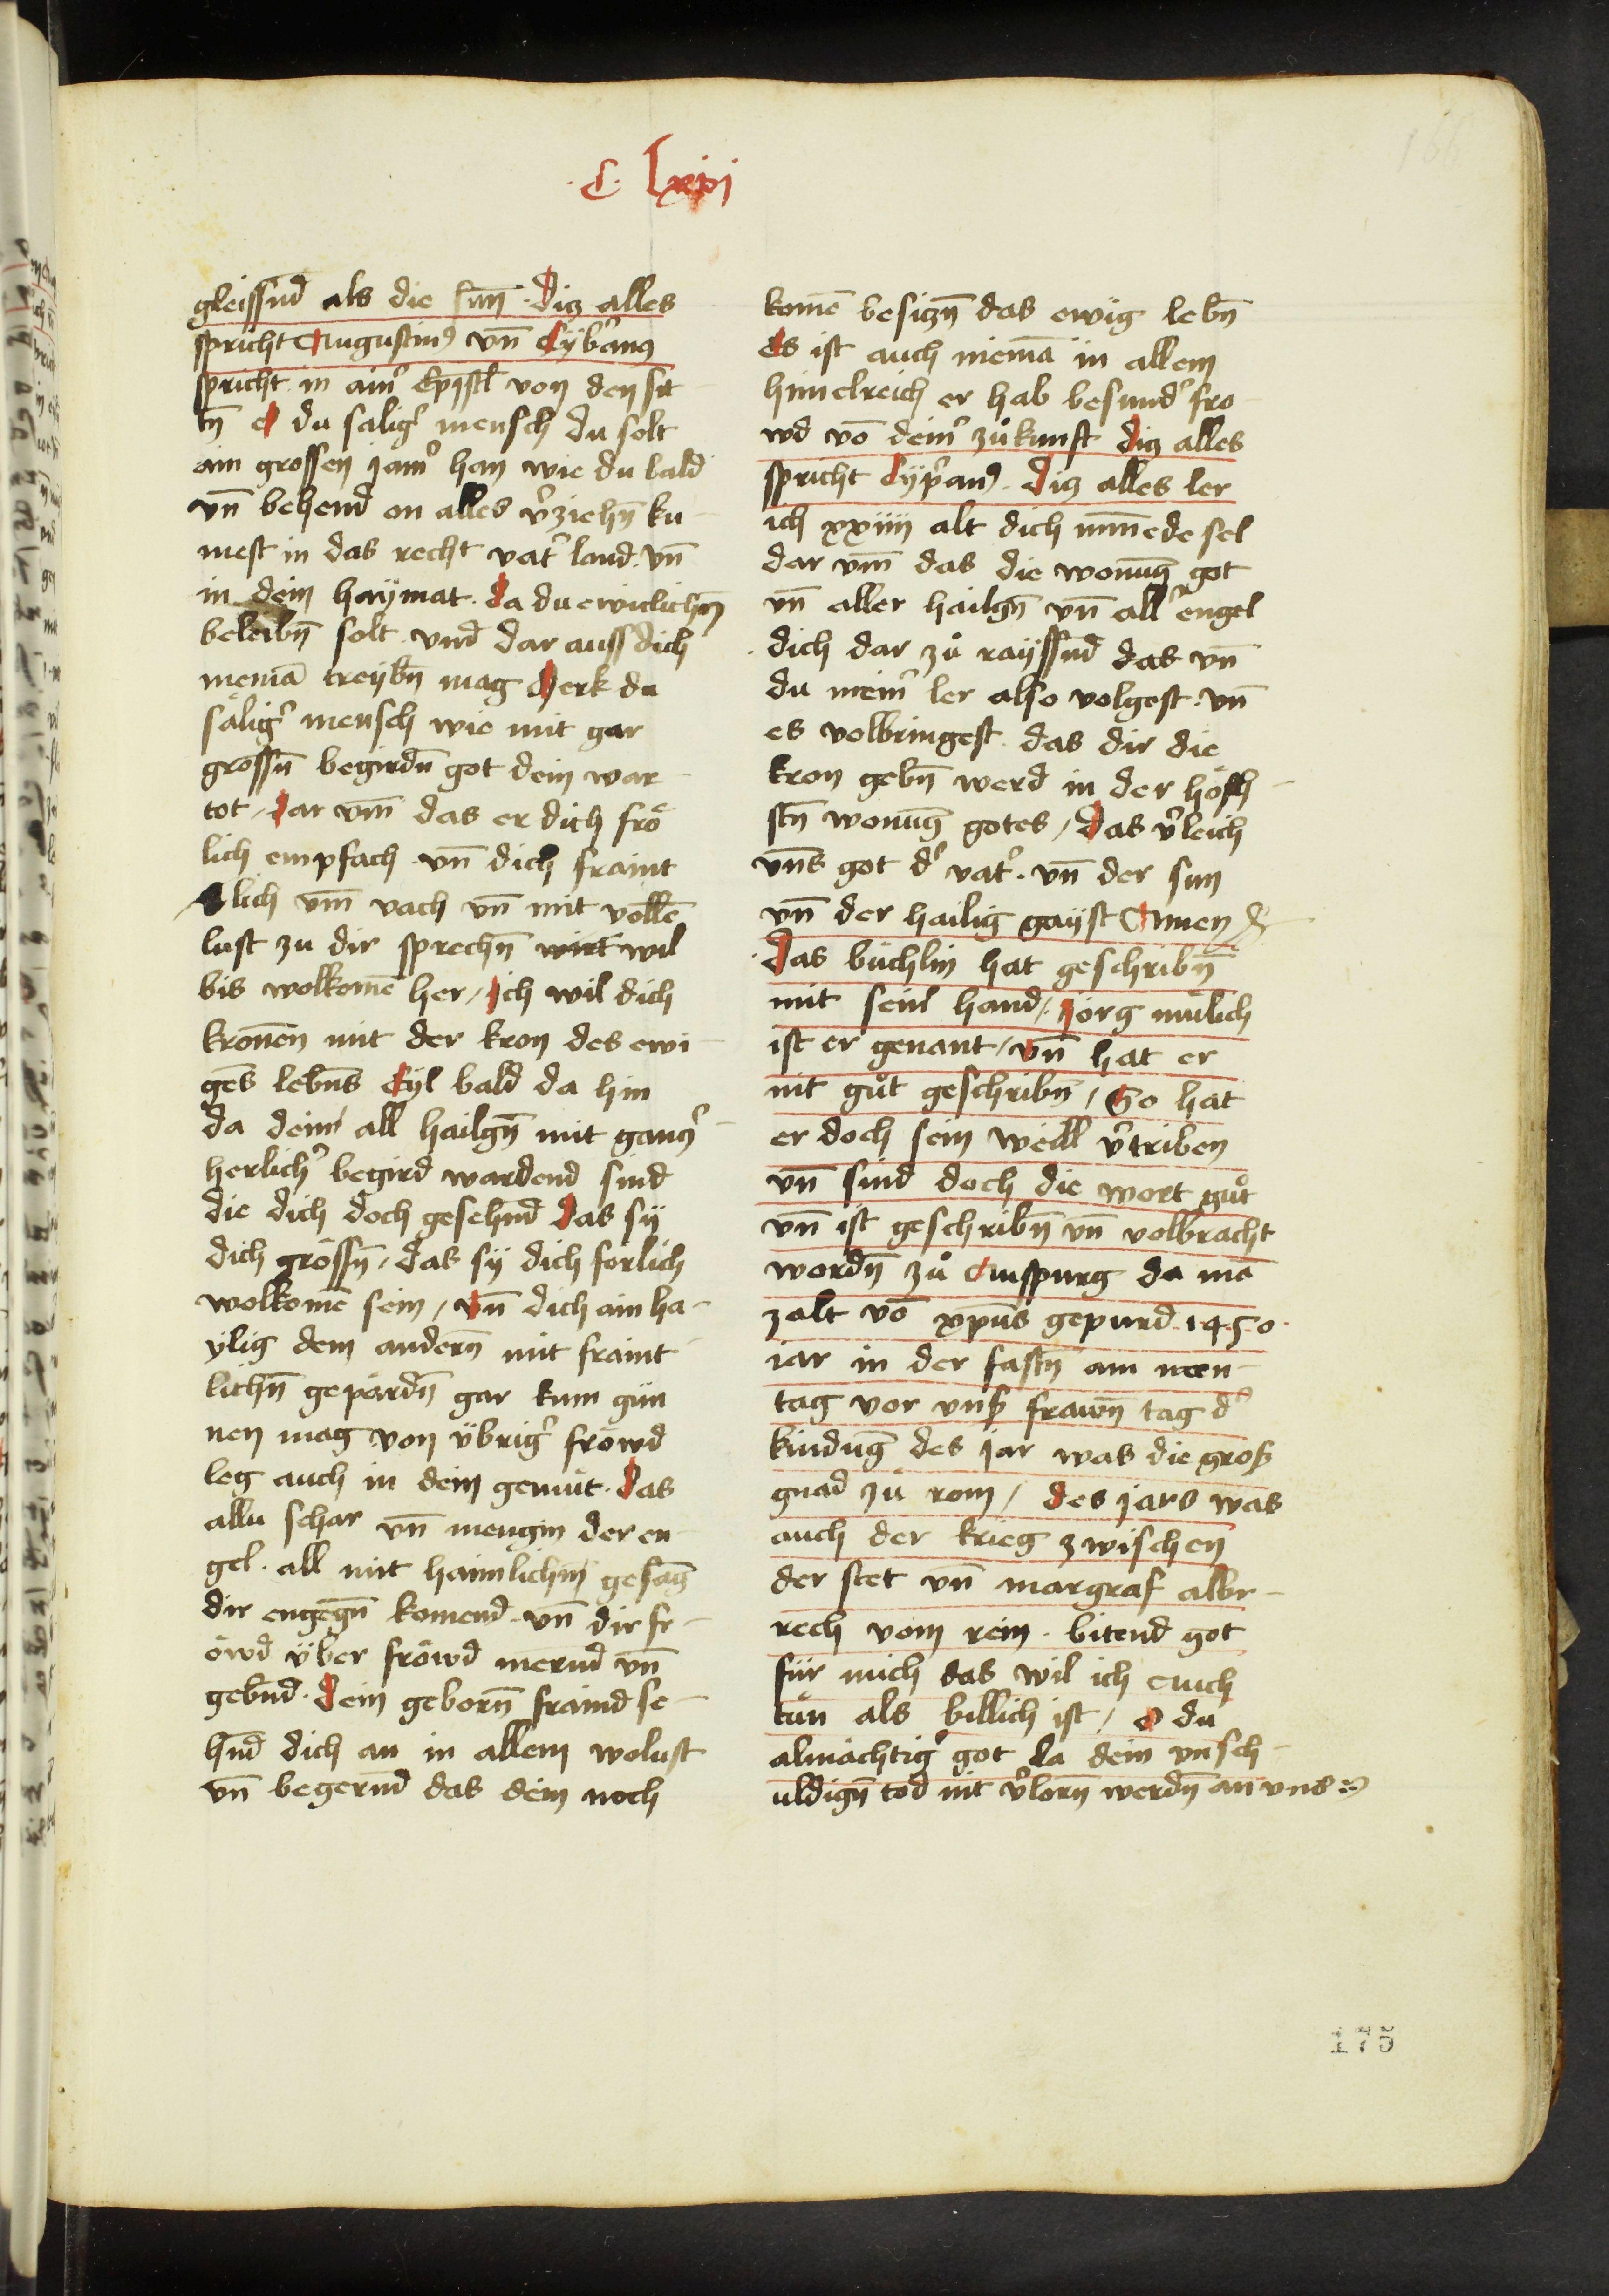 166
.C. lxvj
gleissnd als die sun̄ . Diz alles
spricht Augustin9 vn̄ Cybran9
spricht in aimr̄ Epistl von den sit
tn̄ O du salig' mensch du solt
ain grossen jam' han wie du bald
vn̄ behend on alles v'ziehn̄ ku¬
mest in das recht vat' land . vn̄
in dein haymat . Da du ewiclichn̄
beleibn̄ solt vnd dar auss dich
niemā treybn̄ mag Merk du
sälig' mensch wie mit gar
grossn̄ begirdn̄ got dein war¬
tot / Dar vm̄ das er dich frö
lich empfach . vn̄ dich fraint
lich vm̄ vach vn̄ mit vollē
lust zu dir sprechn̄ wirt wil
bis wolkomē her / Ich wil dich
kronē̄n mit der kron des ewi¬
gēs lebn̄s Eyl bald da hin
da dein all hailgn̄ mit gancz'
herlich' begird wardend sind
die dich doch gesehnd Das sy
dich grössn̄ / das sy dich forlich
wolkomē sein / Vn̄ dich ain ha¬
ylig dem andern̄ mit fraint¬
lichn̄ gepärdn̄ gar kum gün
nen mag von übrig' fröwd
leg auch in dein gemüt . Das
allu schar vn̄ mengin der en¬
gel . all mit haimlichm gesāg
dir engegn̄ komend . vn̄ dir fr¬
öwd über fröwd mernd vn̄
gebnd . Dein geborn̄ fraind se¬
hnd dich an in allem wolust
vn̄ begernd das dein noch
komē besiczn̄ das ewig lebn̄
Es ist auch niemā in allem
himelreich er hab besund' fro¬
wd vō deim' zůkunft Diz alles
spricht Cyp'an9 . Diz alles ler
ich xxiiij alt dich minnede sel
dar vm̄ das die wonūg got
vn̄ aller hailgn̄ vn̄ all' engel
dich dar zů rayssnd das vn̄
du mein' ler also volgest . vn̄
es volbringest . das dir die
kron gebn̄ werd in der höch¬
stn̄ wonūg gotes / Das v'leich
vn̄s got d' vat' . vn̄ der sun
vn̄ der hailig gayst Amen
Das büchlin hat geschribn̄
mit seinl hand / Jörg mülich
ist er genant / Vn̄ hat er
nit gůt geschribn̄ / So hat
er doch sein weill v'triben
vn̄ sind doch die wort gůt
vn̄ ist geschribn̄ vn̄ volbracht
wordn̄ zů Auspurg da mā
zalt vō xp̄us gepurd . 1450 .
iar in der fastn̄ am men¬
tag vor vnß frawn̄ tag d'
kindūg des jar was die groß
gnad zů rom / Des jars was
auch der krieg zwischen̄
der stet vn̄ margraf albr¬
rech vom rein . bitend got
für mich das wil ich euch
tůn als billich ist / O du
almächtig' got la dein vnsch¬
uldign̄ tod nit v'lorn̄ werdn̄ an vns
175